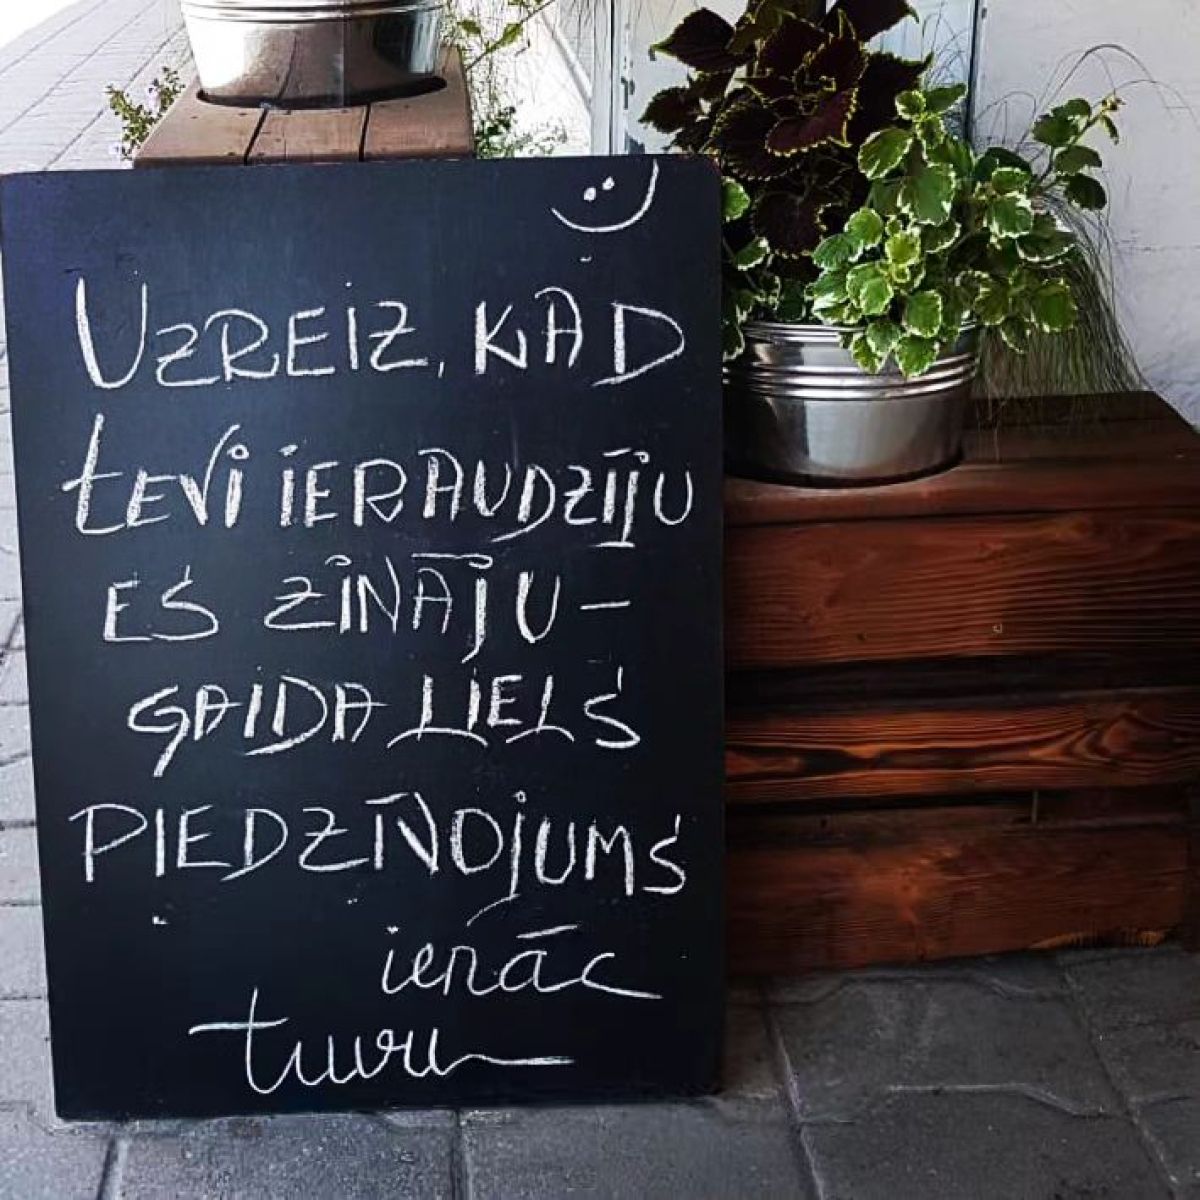 UZREIZ, KAD
tEVi iERAUDZĪJU
ES ZiNĀJU –
GAIDA LIELS
PIEDZĪVOJUMS
ienāc
tuvu